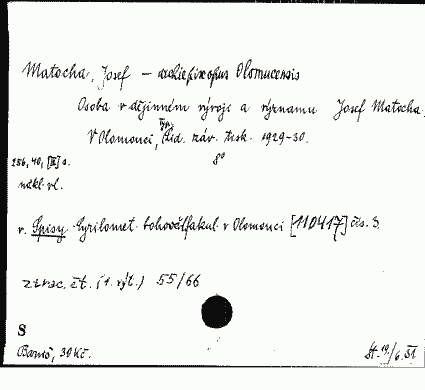 Matocha, Josef — archiepiscopus Olomucensis
Osoba v dějinném vývoji a významu. Josef Matocha.
V Olomouci, Lid. záv. tisk. 1929-30.
8°
256, 40, [III] s.
nákl. vl.
v. Spisy Cyrilomet. bohoslfakul. v Olomouci [110417] čís. 3.
ztrac. čt. (1. výt.) 55/66
S
Baroš, 30 Kč.
St. 19./6.51